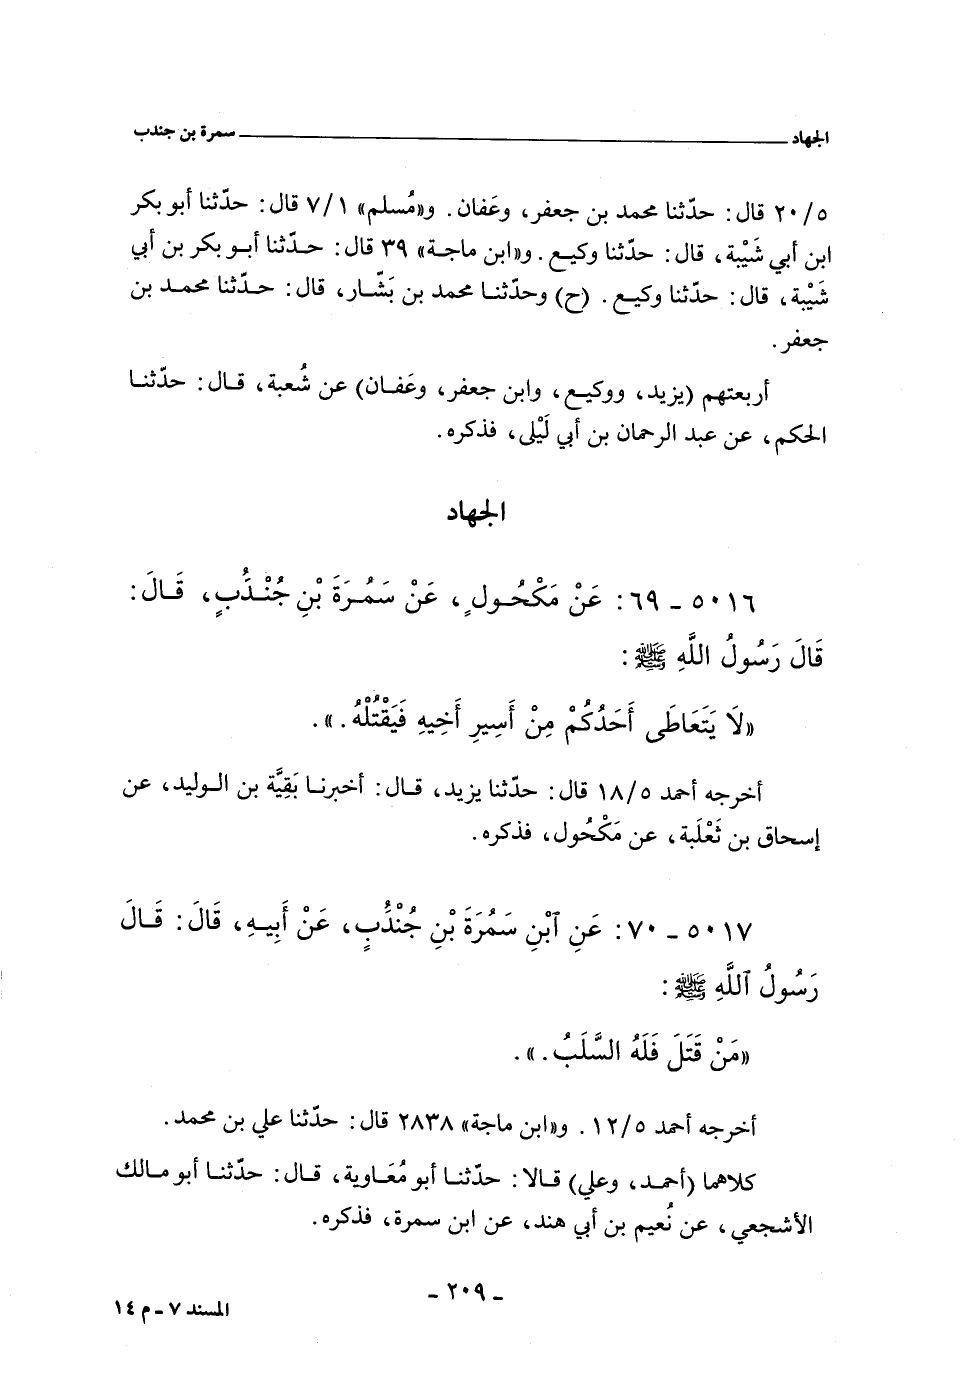 الجهاد ـــــــــــــــــ سمرة بن جندب
٢٠/٥ قال: حدّثنا محمد بن جعفر، وعَفان. و«مُسلم» ٧/١ قال: حدّثنا أبو بكر
ابن أبي شَيْبة، قال: حدّثنا وكيع. و«ابن ماجة» ٣٩ قال: حدّثنا أبو بكر بن أبي
شَيْبة، قال: حدّثنا وكيع. (ح) وحدّثنا محمد بن بَشَّار، قال: حدّثنا محمد بن
جعفر.
أربعتهم (يزيد، ووكيع، وابن جعفر، وعَفان) عن شُعبة، قال: حدّثنا
الحكم، عن عبد الرحمان بن أبي لَيْلى، فذكره.
الجهاد
٥٠١٦ ـ ٦٩: عَنْ مَكْحُولٍ، عَنْ سَمُرَةَ بْنِ جُنْدَُبٍ، قَالَ:
قَالَ رَسُولُ اللَّهِ ﷺ:
«لَا يَتَعَاطَى أَحَدُكُمْ مِنْ أَسِيرِ أَخِيهِ فَيَقْتُلْهُ.».
أخرجه أحمد ١٨/٥ قال: حدّثنا يزيد، قال: أخبرنا بَقِيَّة بن الوليد، عن
إسحاق بن ثَعْلَبة، عن مَكْحُول، فذكره.
٥٠١٧ ـ ٧٠: عَنِ ٱبْنِ سَمُرَةَ بْنِ جُنْدَُبٍ، عَنْ أَبِيهِ، قَالَ: قَالَ
رَسُولُ ٱللَّهِ ﷺ:
«مَنْ قَتَلَ فَلَهُ السَّلَبُ.».
أخرجه أحمد ١٢/٥. و«ابن ماجة» ٢٨٣٨ قال: حدّثنا علي بن محمد.
كلاهما (أحمد، وعلي) قالا: حدّثنا أبو مُعَاوية، قال: حدّثنا أبو مالك
الأشجعي، عن نُعيم بن أبي هند، عن ابن سمرة، فذكره.
ـ ٢٠٩ ـ
المسند ٧ ـ م ١٤